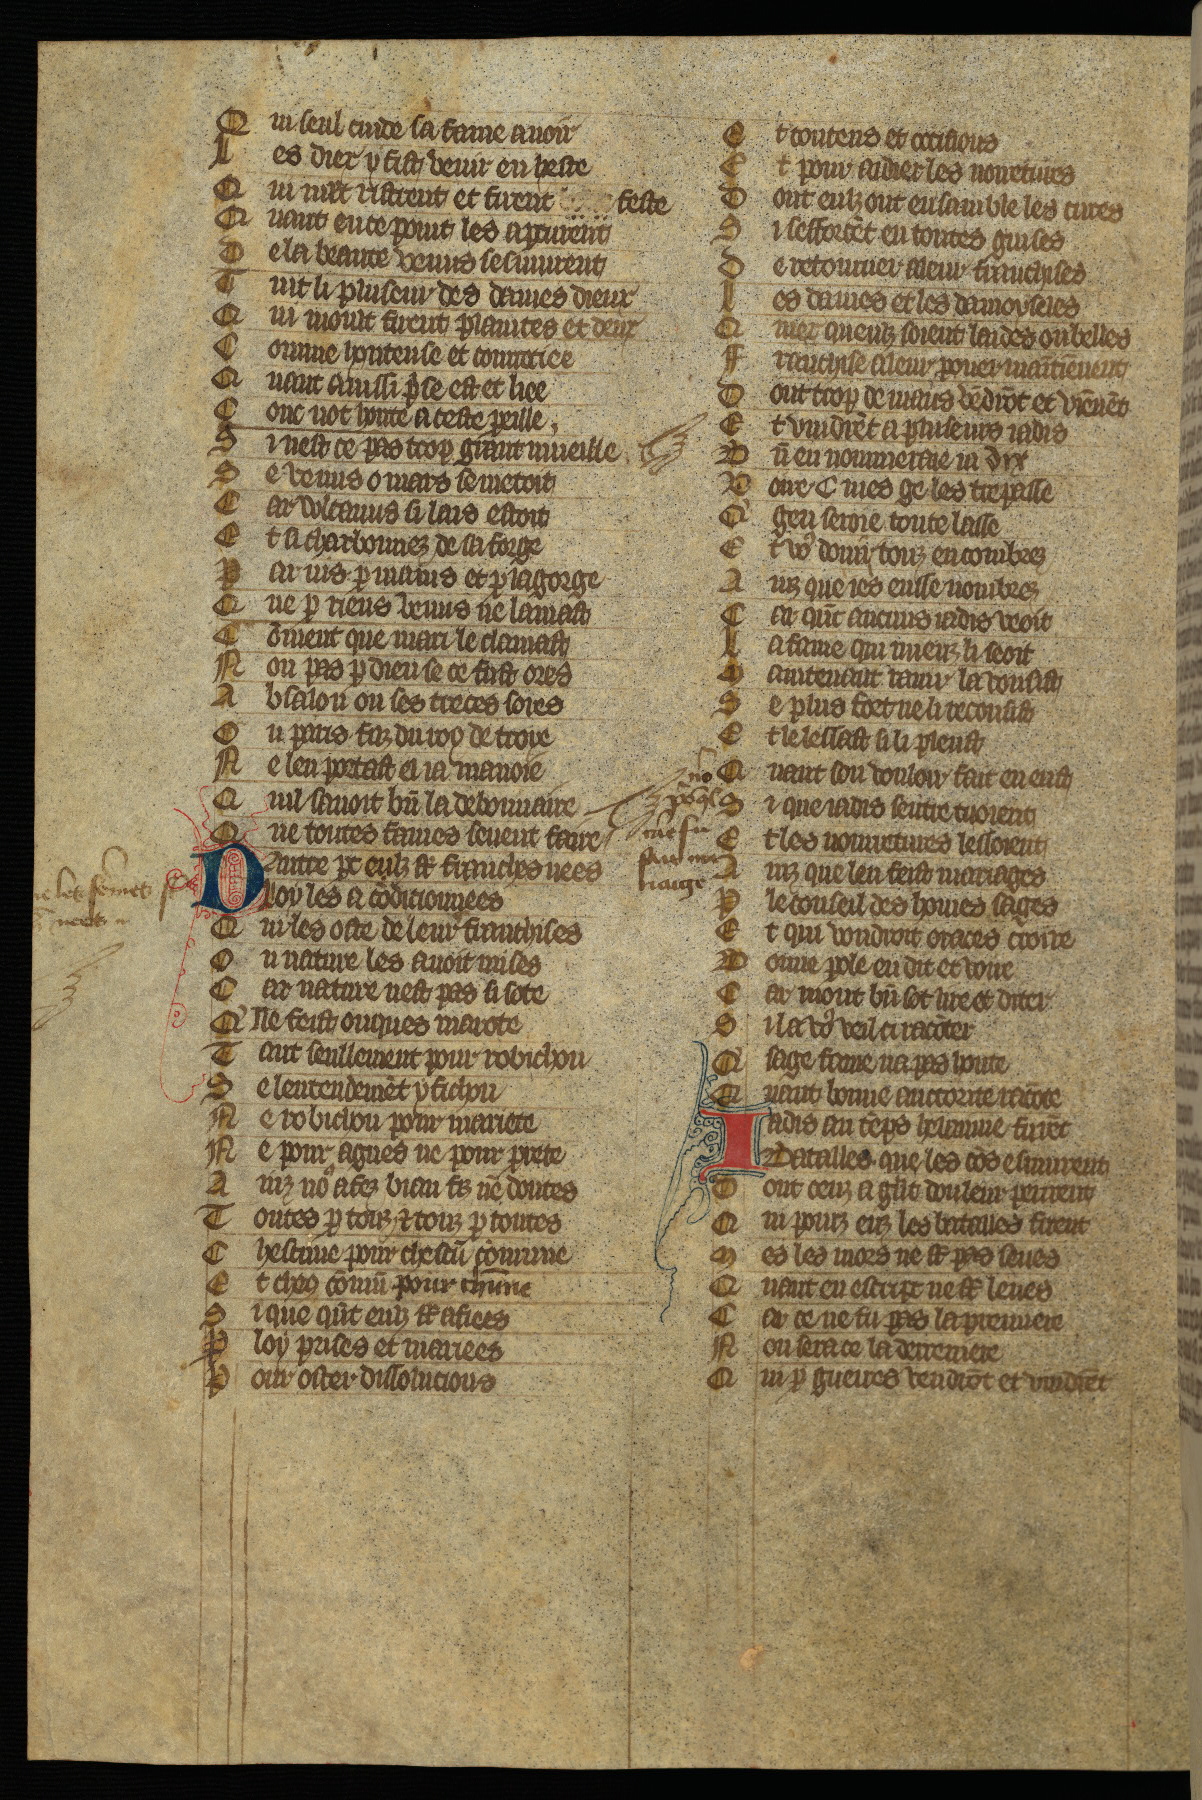 Q ui seul cuide sa fame avoir
L es diex y fist venir en heste
Q ui mlt ristrent et firent feste
Q uant en ce point les aparcurent
D e la beaute venus sesmurent
T uit li pluseur des dames dieux
Q ui moult firent plaintes et deux
C omme honteuse et courrocee
Q uant ainssi prise est et liee
C onc not honte a ceste pareille
S i nest ce pas trop grant merveille
S e venus o mars se metoit
C ar vulcanus si lais estoit
E t si charbonnez de sa forge
P ar vis p mains et p la gorge
Q ue p riens venus ne lamast
C õment que mari le clamast
N on pas p dieu se ce fust ores
A bsalon ou ses treces sores
O u paris filz du roy de troye
N e len portast el ia manoie
Q uil savoit bñ la debonnaire
Q ue toutes fames sevent faire
D autre pt eulz st franches nees
Loy les a cõdicionnees
Q ui les oste de leur franchises
O u nature les avoit mises
C ar nature nest pas si sote
Q 'lle feist onques marote
T ant seullement pour robichon
S e lentendemẽt y fichon
N e robichon pour mariete
N e pour agnes ne pour prete
A inz no9 a fez biau filz nẽ doutes
T outes p touz et touz p toutes
C hescune pour chescũ cõmune
E t chescũ cõmũ pour chũne
S i que qñt eulz st afiees
P loy prises et mariees
P our oster dissolucions
E t contens et occisions
E t pour aidier les norretures
D ont eulz ont ensamble les cures
S i sefforcẽt en toutes guises
D e retourner a leur franchises
L es dames et les damoyseles
Q uiex queulz soient laides ou belles
F ranchise a leur pouer maintienent
D ont trop de maus vẽdrõt et viẽnẽt
E t vindrẽt a pluseurs iadis
B ñ en nommeraie ia dix
V oire C mes ge les trepasse
Q ' gen seroie toute lasse
E t vo9 doũr touz encombrez
A inz que ies eusse nombrez
C ar qñt aucuns iadis veoit
L a fame qui mieuz li seoit
M aintenant ravir la vousist
S e plus fort ne li tecousist
E t le lessast si li pleust
Q uant son vouloir fait en eust
S i que iadis sentre tuoient
E t les norretures lessoient
A inz que len feist mariages
P le conseil des homes sages
E t qui voudroit oraces croire
B onne pole en dit et voire
C ar mout bñ sot lire et diter
S i la vo9 veil ci racõter
Q ' sage fame na pas honte
Q uant bonne auctorite racõte
Iadis au tẽps helainne furẽt
Batalles que les cõs esmurent
D ont ceuz a gñt douleur perirent
Q ui pour euz les batalles firent
M es les mors ne st pas seues
Q uant en escript ne st leues
C ar ce ne fu pas la premiere
N on sera ce la derreniere
Q ui p guerres vendrõt et vindrẽt